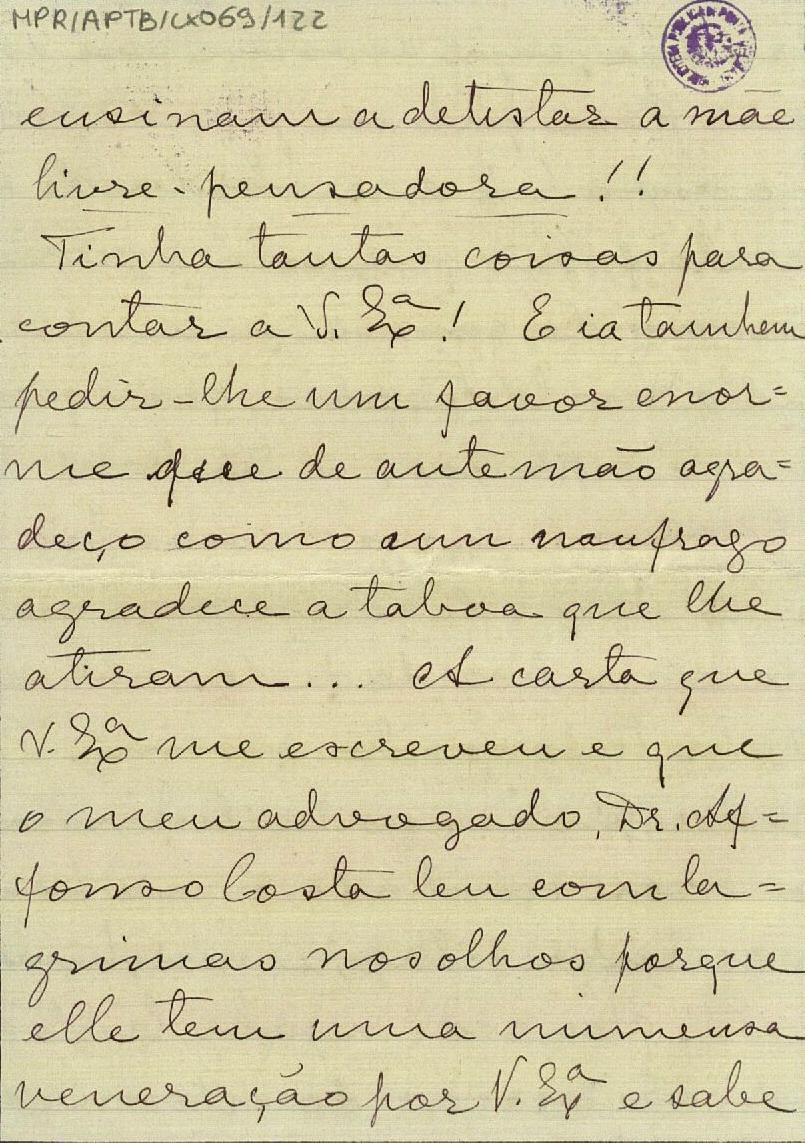 MPR/APTB/CX069/122
ensinam a detestar a mãe
livre-pensadora!!
Tinha tantas coisas para
contar a V. Exª! E ia tambem
pedir-lhe um favor enor=
me que de antemão agra=
deço como um naufrago
agradece a taboa que lhe
atiram... A carta que
V. Exª me escreveu e que
o meu advogado, Dr. Af=
fonso Costa leu com la=
grimas nos olhos porque
elle tem uma immensa
veneração por V. Exª e sabe